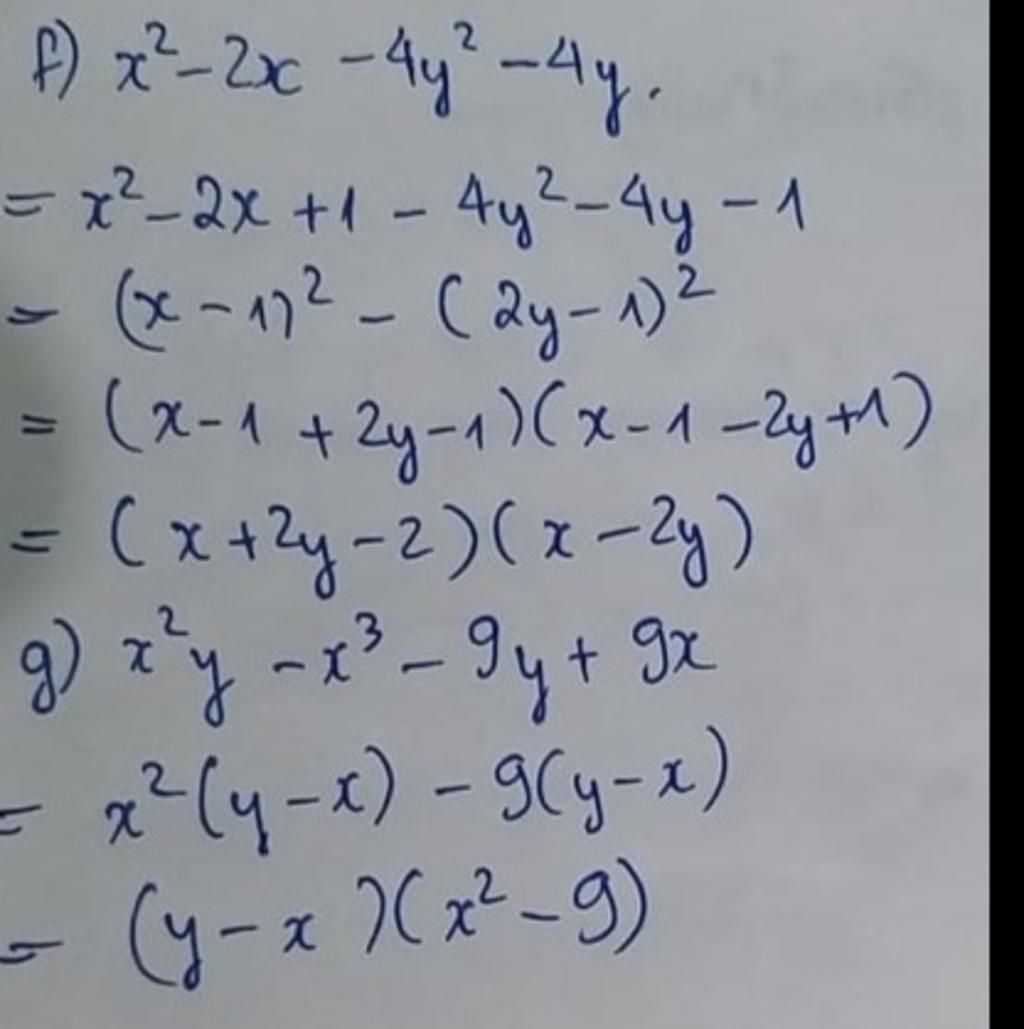 f) x² - 2x - 4y² - 4y.
= x² - 2x + 1 - 4y² - 4y - 1
= (x - 1)² - (2y - 1)²
= (x - 1 + 2y - 1)(x - 1 - 2y + 1)
= (x + 2y - 2)(x - 2y)
g) x²y - x³ - 9y + 9x
= x²(y - x) - 9(y - x)
= (y - x)(x² - 9)